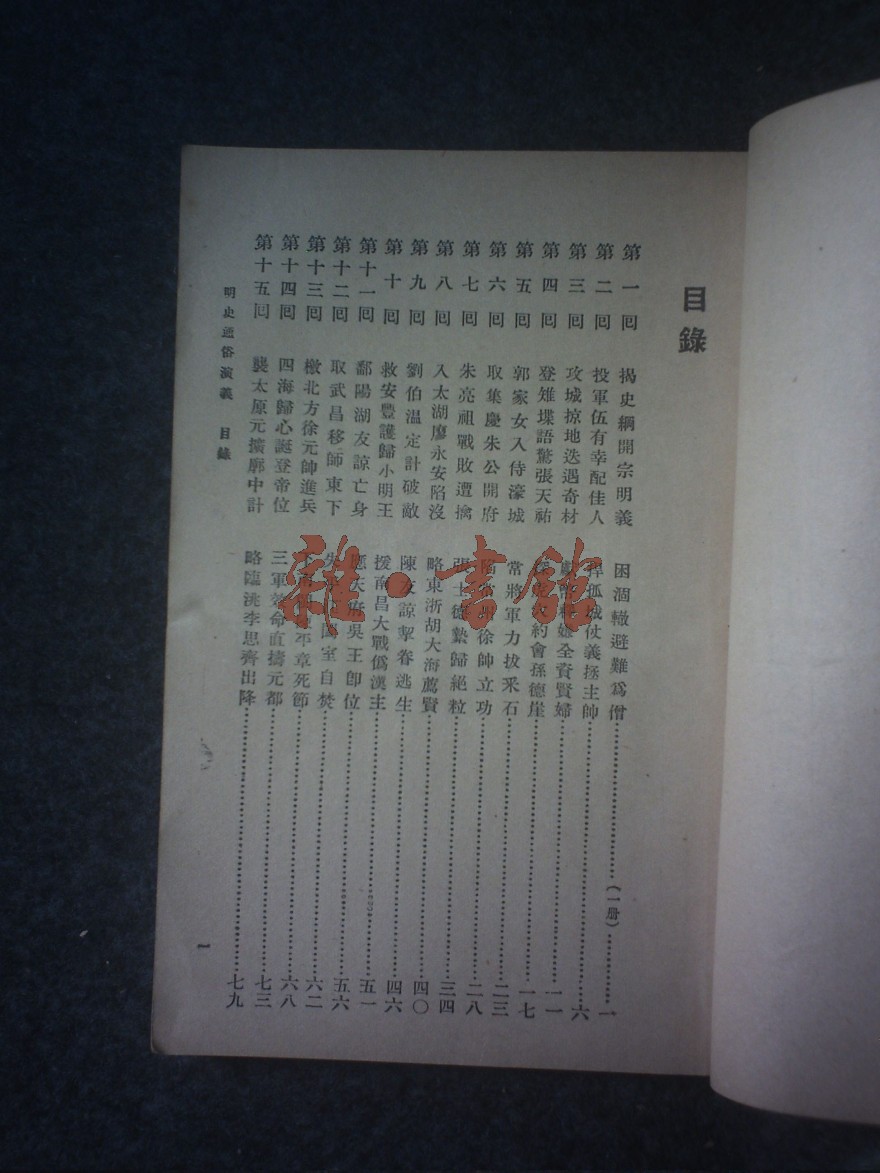 目錄
第一回 揭史綱開宗明義 困涸轍避難爲僧 (一册) 一
第二回 投軍伍有幸配佳人 捍孤城仗義拯主帥 六
第三回 攻城掠地迭遇奇材 全資賢婦 一一
第四回 登雉堞語驚張天祐 約會孫德崖 一七
第五回 郭家女入侍濠城 常將軍力拔采石 二三
第六回 取集慶朱公開府 徐帥立功 二八
第七回 朱亮祖戰敗遭擒 張士德縶歸絕粒 三四
第八回 入太湖廖永安陷沒 略東浙胡大海薦賢 四〇
第九回 劉伯温定計破敵 陳友諒挈眷逃生 四六
第十回 救安豐護歸小明王 援南昌大戰僞漢主 五一
第十一回 鄱陽湖友諒亡身 應天府吳王卽位 五六
第十二回 取武昌移師東下 失 室自焚 六二
第十三回 檄北方徐元帥進兵 章死節 六八
第十四回 四海歸心誕登帝位 三軍效命直擣元都 七三
第十五回 襲太原元擴廓中計 略臨洮李思齊出降 七九
明史通俗演義 目錄
一
雜·書館